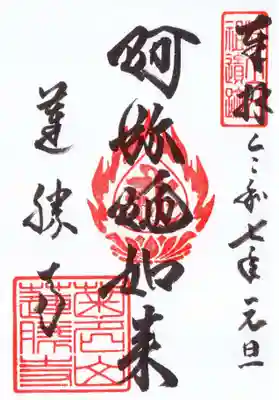 奉拝
令和七年元旦
阿弥陀如来
蓮勝寺